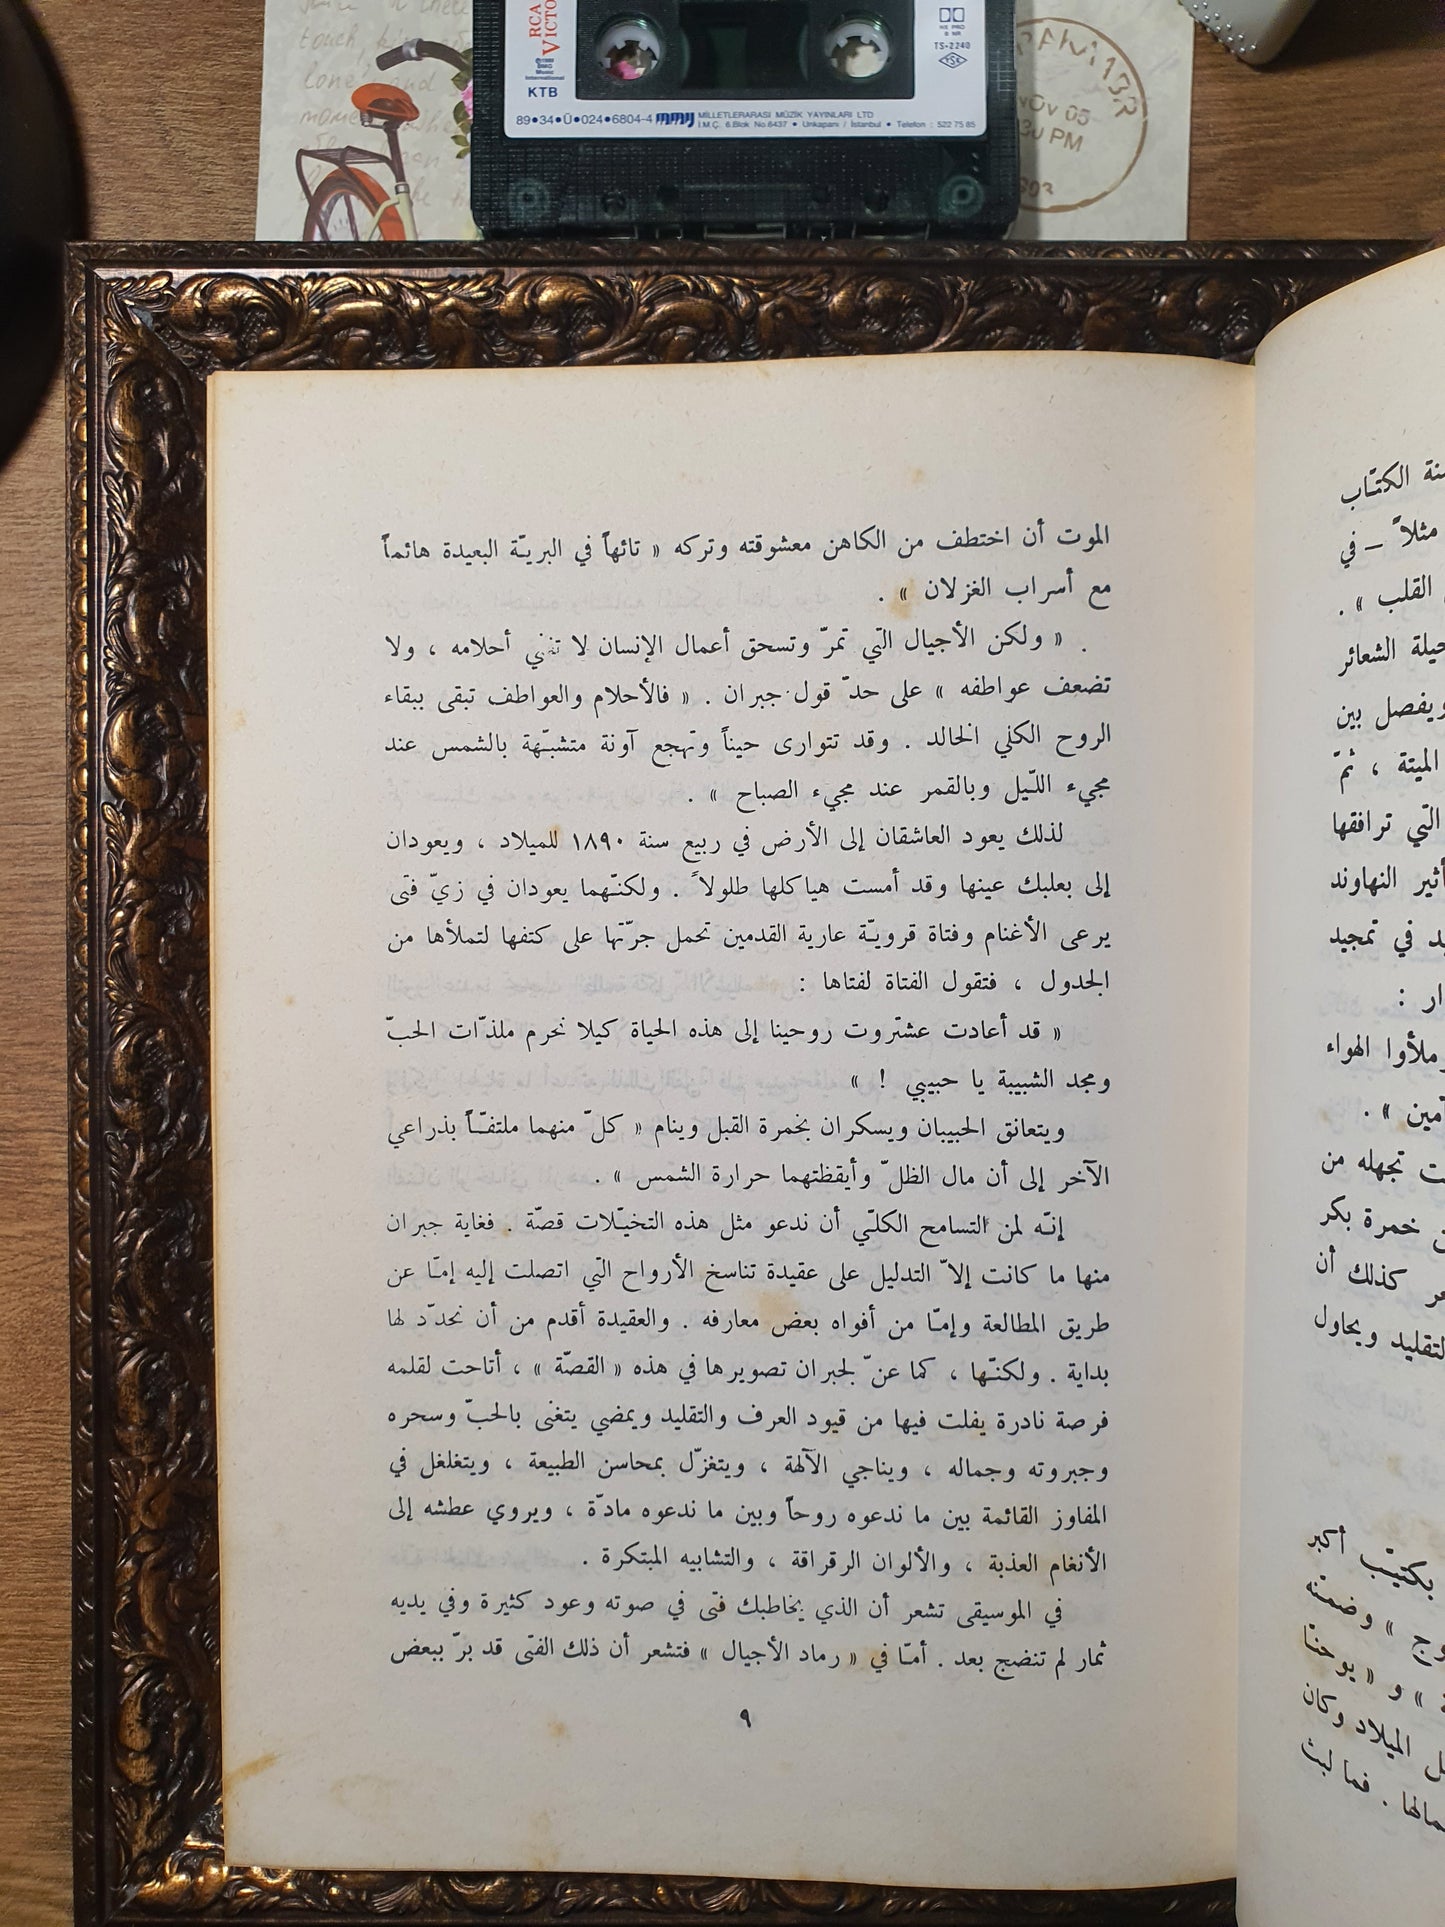 RCA
VICTO
KTB
HX PRO
B NR
TS-2240
TSE
89•34•Ü•024•6804-4 MMY MİLLETLERARASI MÜZİK YAYINLARI LTD
İ.M.Ç. 6.Blok No.6437 • Unkapanı / İstanbul • Telefon : 522 75 85
الموت أن اختطف من الكاهن معشوقته وتركه « تائهاً في البريّة البعيدة هائماً
مع أسراب الغزلان » .
« ولكن الأجيال التي تمرّ وتسحق أعمال الإنسان لا تفني أحلامه ، ولا
تضعف عواطفه » على حدّ قول جبران . « فالأحلام والعواطف تبقى ببقاء
الروح الكلي الخالد . وقد تتوارى حيناً وتهجع آونة متشبّهة بالشمس عند
مجيء اللّيل وبالقمر عند مجيء الصباح » .
لذلك يعود العاشقان إلى الأرض في ربيع سنة ١٨٩٠ للميلاد ، ويعودان
إلى بعلبك عينها وقد أمست هياكلها طلولاً . ولكنّهما يعودان في زيّ فتى
يرعى الأغنام وفتاة قرويّة عارية القدمين تحمل جرّتها على كتفها لتملأها من
الجدول ، فتقول الفتاة لفتاها :
« قد أعادت عشتروت روحينا إلى هذه الحياة كيلا نحرم ملذّات الحبّ
ومجد الشبيبة يا حبيبي ! »
ويتعانق الحبيبان ويسكران بخمرة القبل وينام « كلّ منهما ملتفّاً بذراعي
الآخر إلى أن مال الظلّ وأيقظتهما حرارة الشمس » .
إنّه لمن التسامح الكلّي أن ندعو مثل هذه التخيّلات قصّة . فغاية جبران
منها ما كانت إلاّ التدليل على عقيدة تناسخ الأرواح التي اتصلت إليه إمّا عن
طريق المطالعة وإمّا من أفواه بعض معارفه . والعقيدة أقدم من أن نحدّد لها
بداية . ولكنّها ، كما عنّ لجبران تصويرها في هذه « القصّة » ، أتاحت لقلمه
فرصة نادرة يفلت فيها من قيود العرف والتقليد ويمضي يتغنى بالحبّ وسحره
وجبروته وجماله ، ويناجي الآلهة ، ويتغزّل بمحاسن الطبيعة ، ويتغلغل في
المفاوز القائمة بين ما ندعوه روحاً وبين ما ندعوه مادّة ، ويروي عطشه إلى
الأنغام العذبة ، والألوان الرقراقة ، والتشابيه المبتكرة .
في الموسيقى تشعر أن الذي يخاطبك فتى في صوته وعود كثيرة وفي يديه
ثمار لم تنضج بعد . أمّا في « رماد الأجيال » فتشعر أن ذلك الفتى قد برّ ببعض
٩
الكتاب
مثلاً – في
القلب » .
الشعائر
ويفصل بين
الميتة ، ثمّ
التي ترافقها
النهاوند
في تمجيد
الهواء
تجهله من
خمرة بكر
كذلك أن
ويحاول
بكتيّب أكبر
وضمنه
« يوحنا
الميلاد وكان
فما لبث